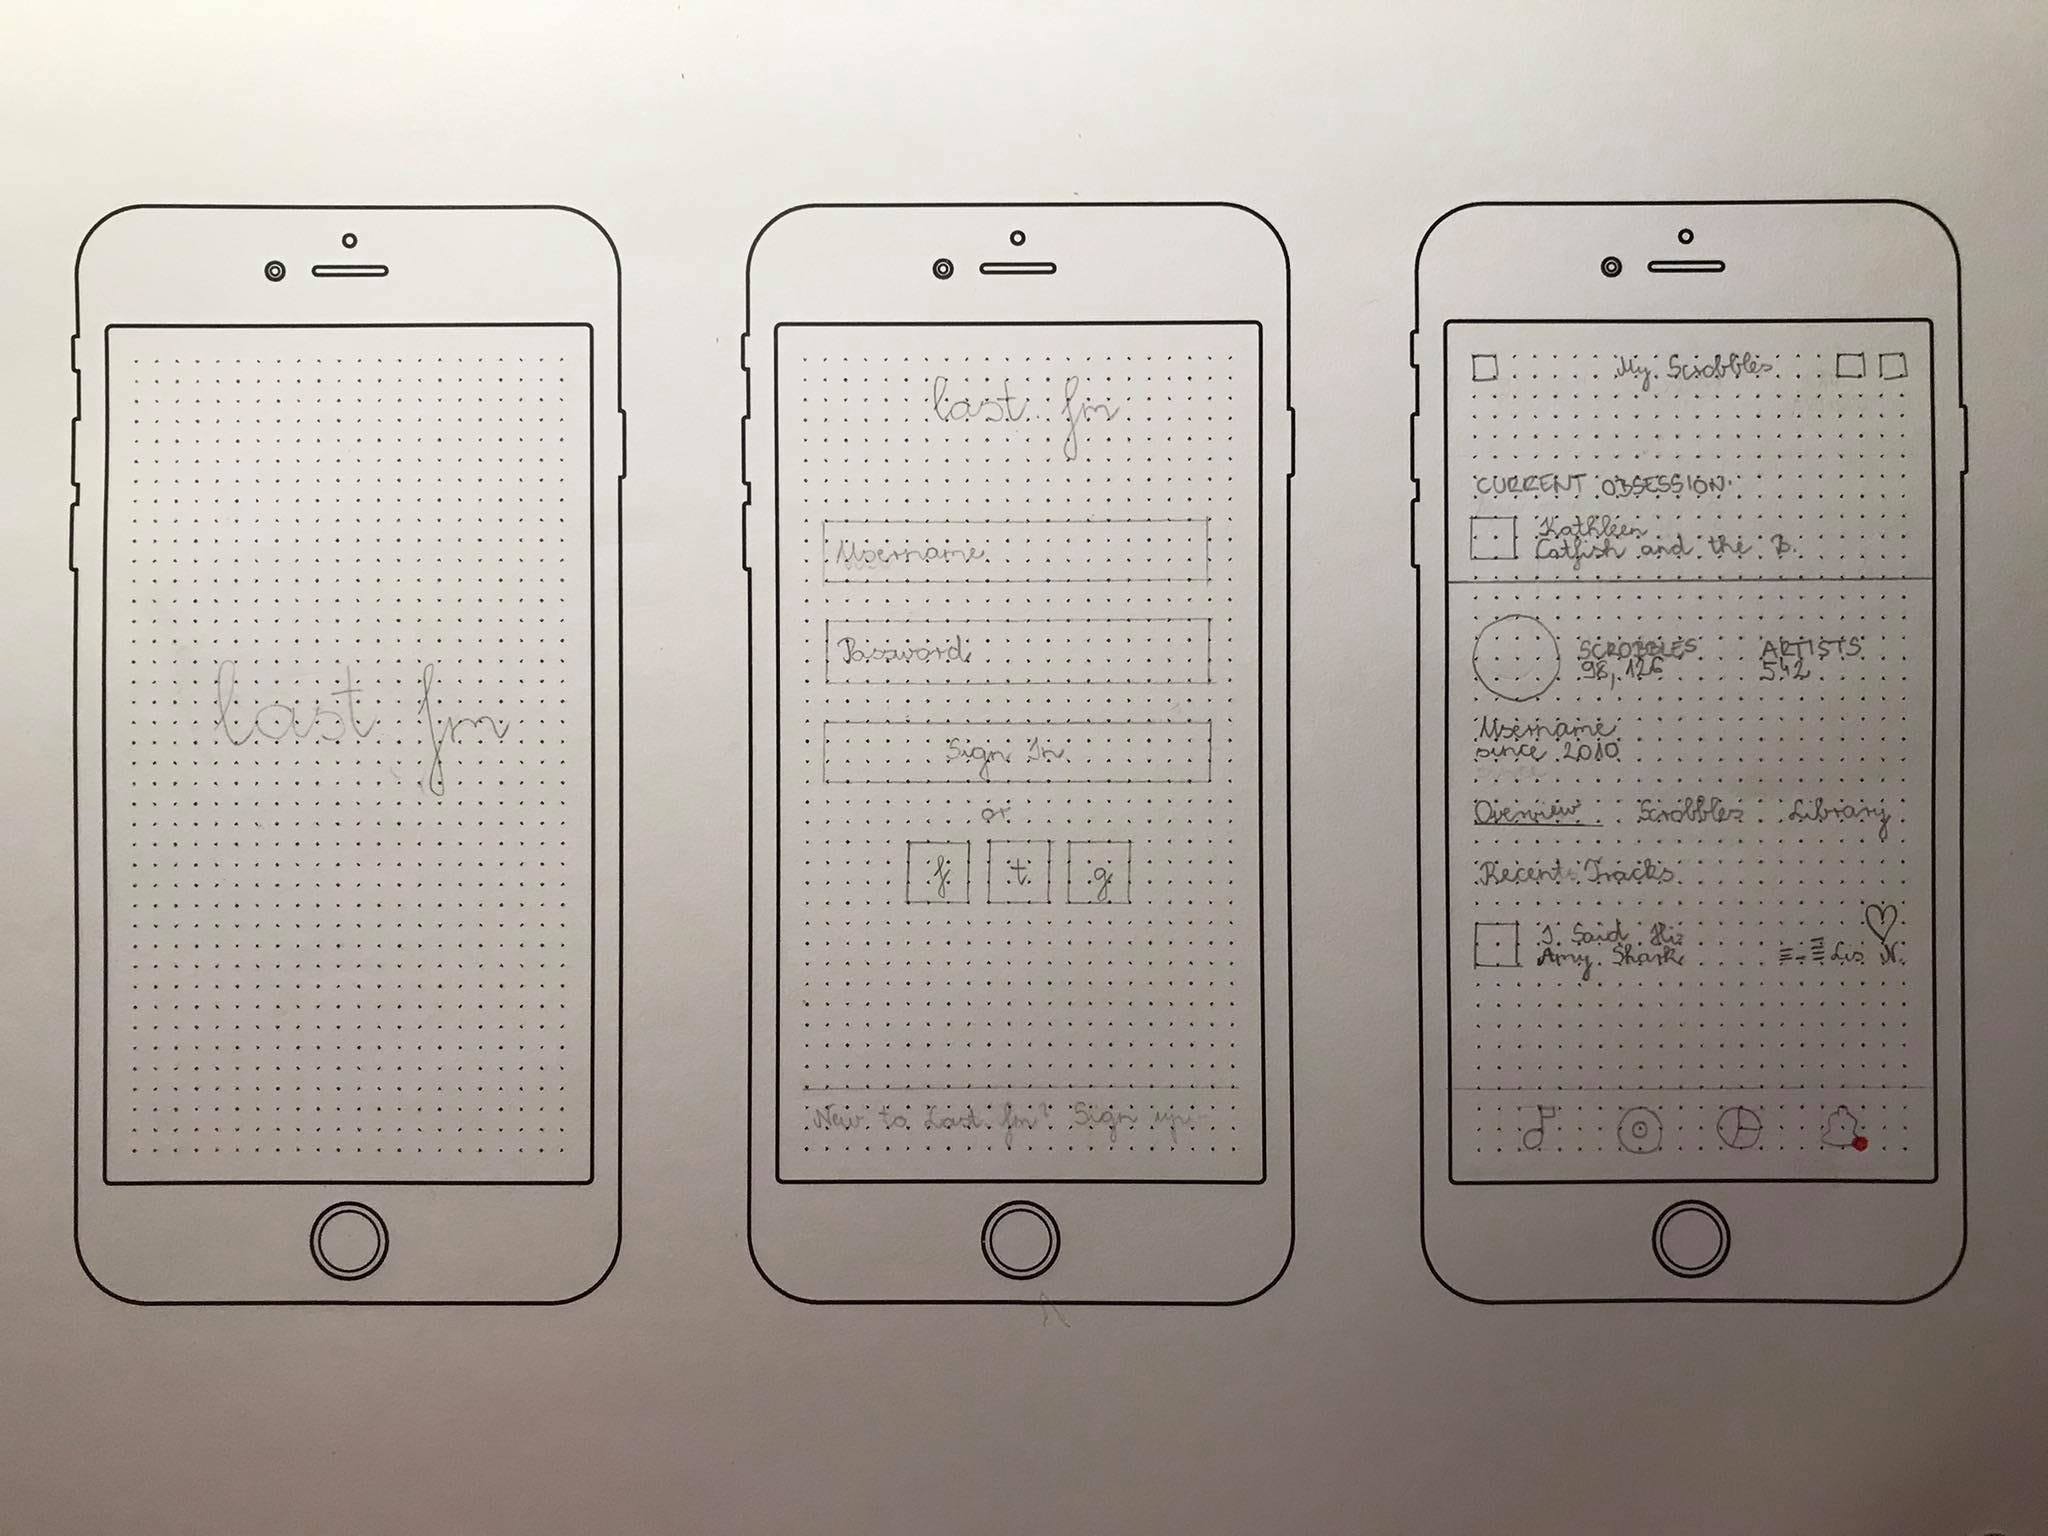 last fm
last fm
Username
Password
Sign In
or
f t g
New to Last fm? Sign up
My Scrobbles
CURRENT OBSESSION
Kathleen
Catfish and the B.
SCROBBLES ARTISTS
98,126 542
Username
since 2010
Overview Scrobbles Library
Recent Tracks
I Said Hi
Amy Shark Lis N.